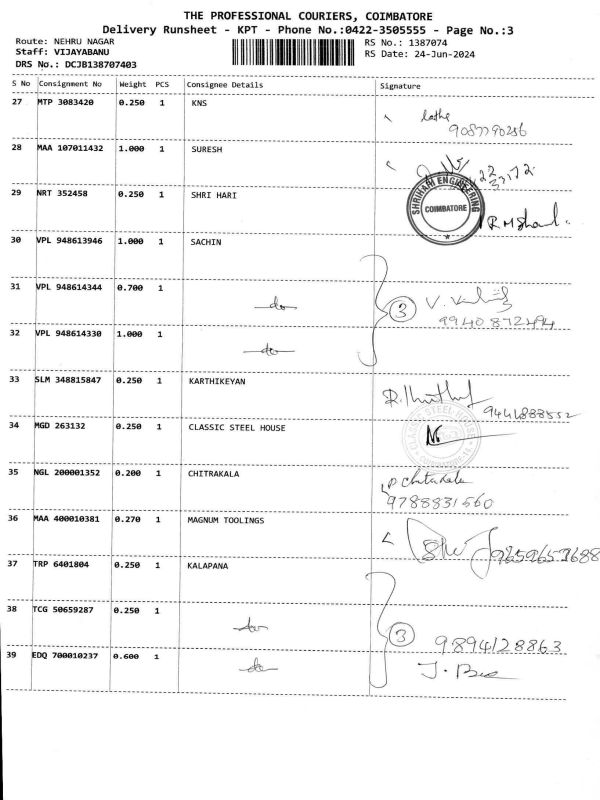 THE PROFESSIONAL COURIERS, COIMBATORE
Delivery Runsheet - KPT - Phone No.:0422-3505555 - Page No.:3
Route: NEHRU NAGAR
RS No.: 1387074
Staff: VIJAYABANU
RS Date: 24-Jun-2024
DRS No.: DCJB138707403
S No Consignment No Weight PCS Consignee Details Signature
27 MTP 3083420 0.250 1 KNS
9087790286
28 MAA 107011432 1.000 1 SURESH
29 NRT 352458 0.250 1 SHRI HARI
SHRIHARI ENGINEERING
COIMBATORE
30 VPL 948613946 1.000 1 SACHIN
31 VPL 948614344 0.700 1 do
3
9940872494
32 VPL 948614330 1.000 1 do
33 SLM 348815847 0.250 1 KARTHIKEYAN
9441888552
34 MGD 263132 0.250 1 CLASSIC STEEL HOUSE
CLASSIC STEEL HOUSE
35 NGL 200001352 0.200 1 CHITRAKALA
P Chitrakala
9788831560
36 MAA 400010381 0.270 1 MAGNUM TOOLINGS
9659653688
37 TRP 6401804 0.250 1 KALAPANA
38 TCG 50659287 0.250 1 do
3
9894128863
39 EDQ 700010237 0.600 1 do